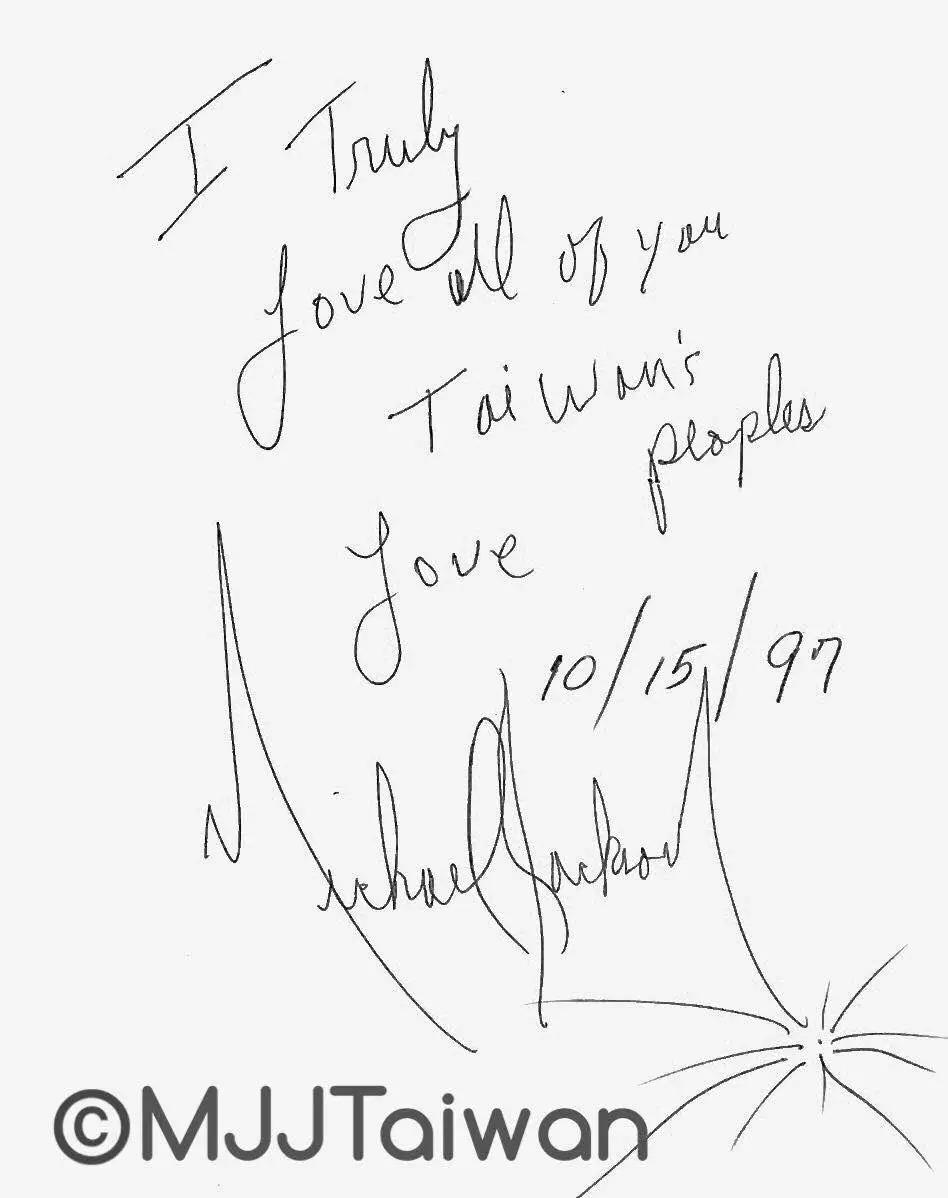 I Truly
Love all of you
Taiwan's
peoples
Love
10/15/97
Michael Jackson
©MJJTaiwan